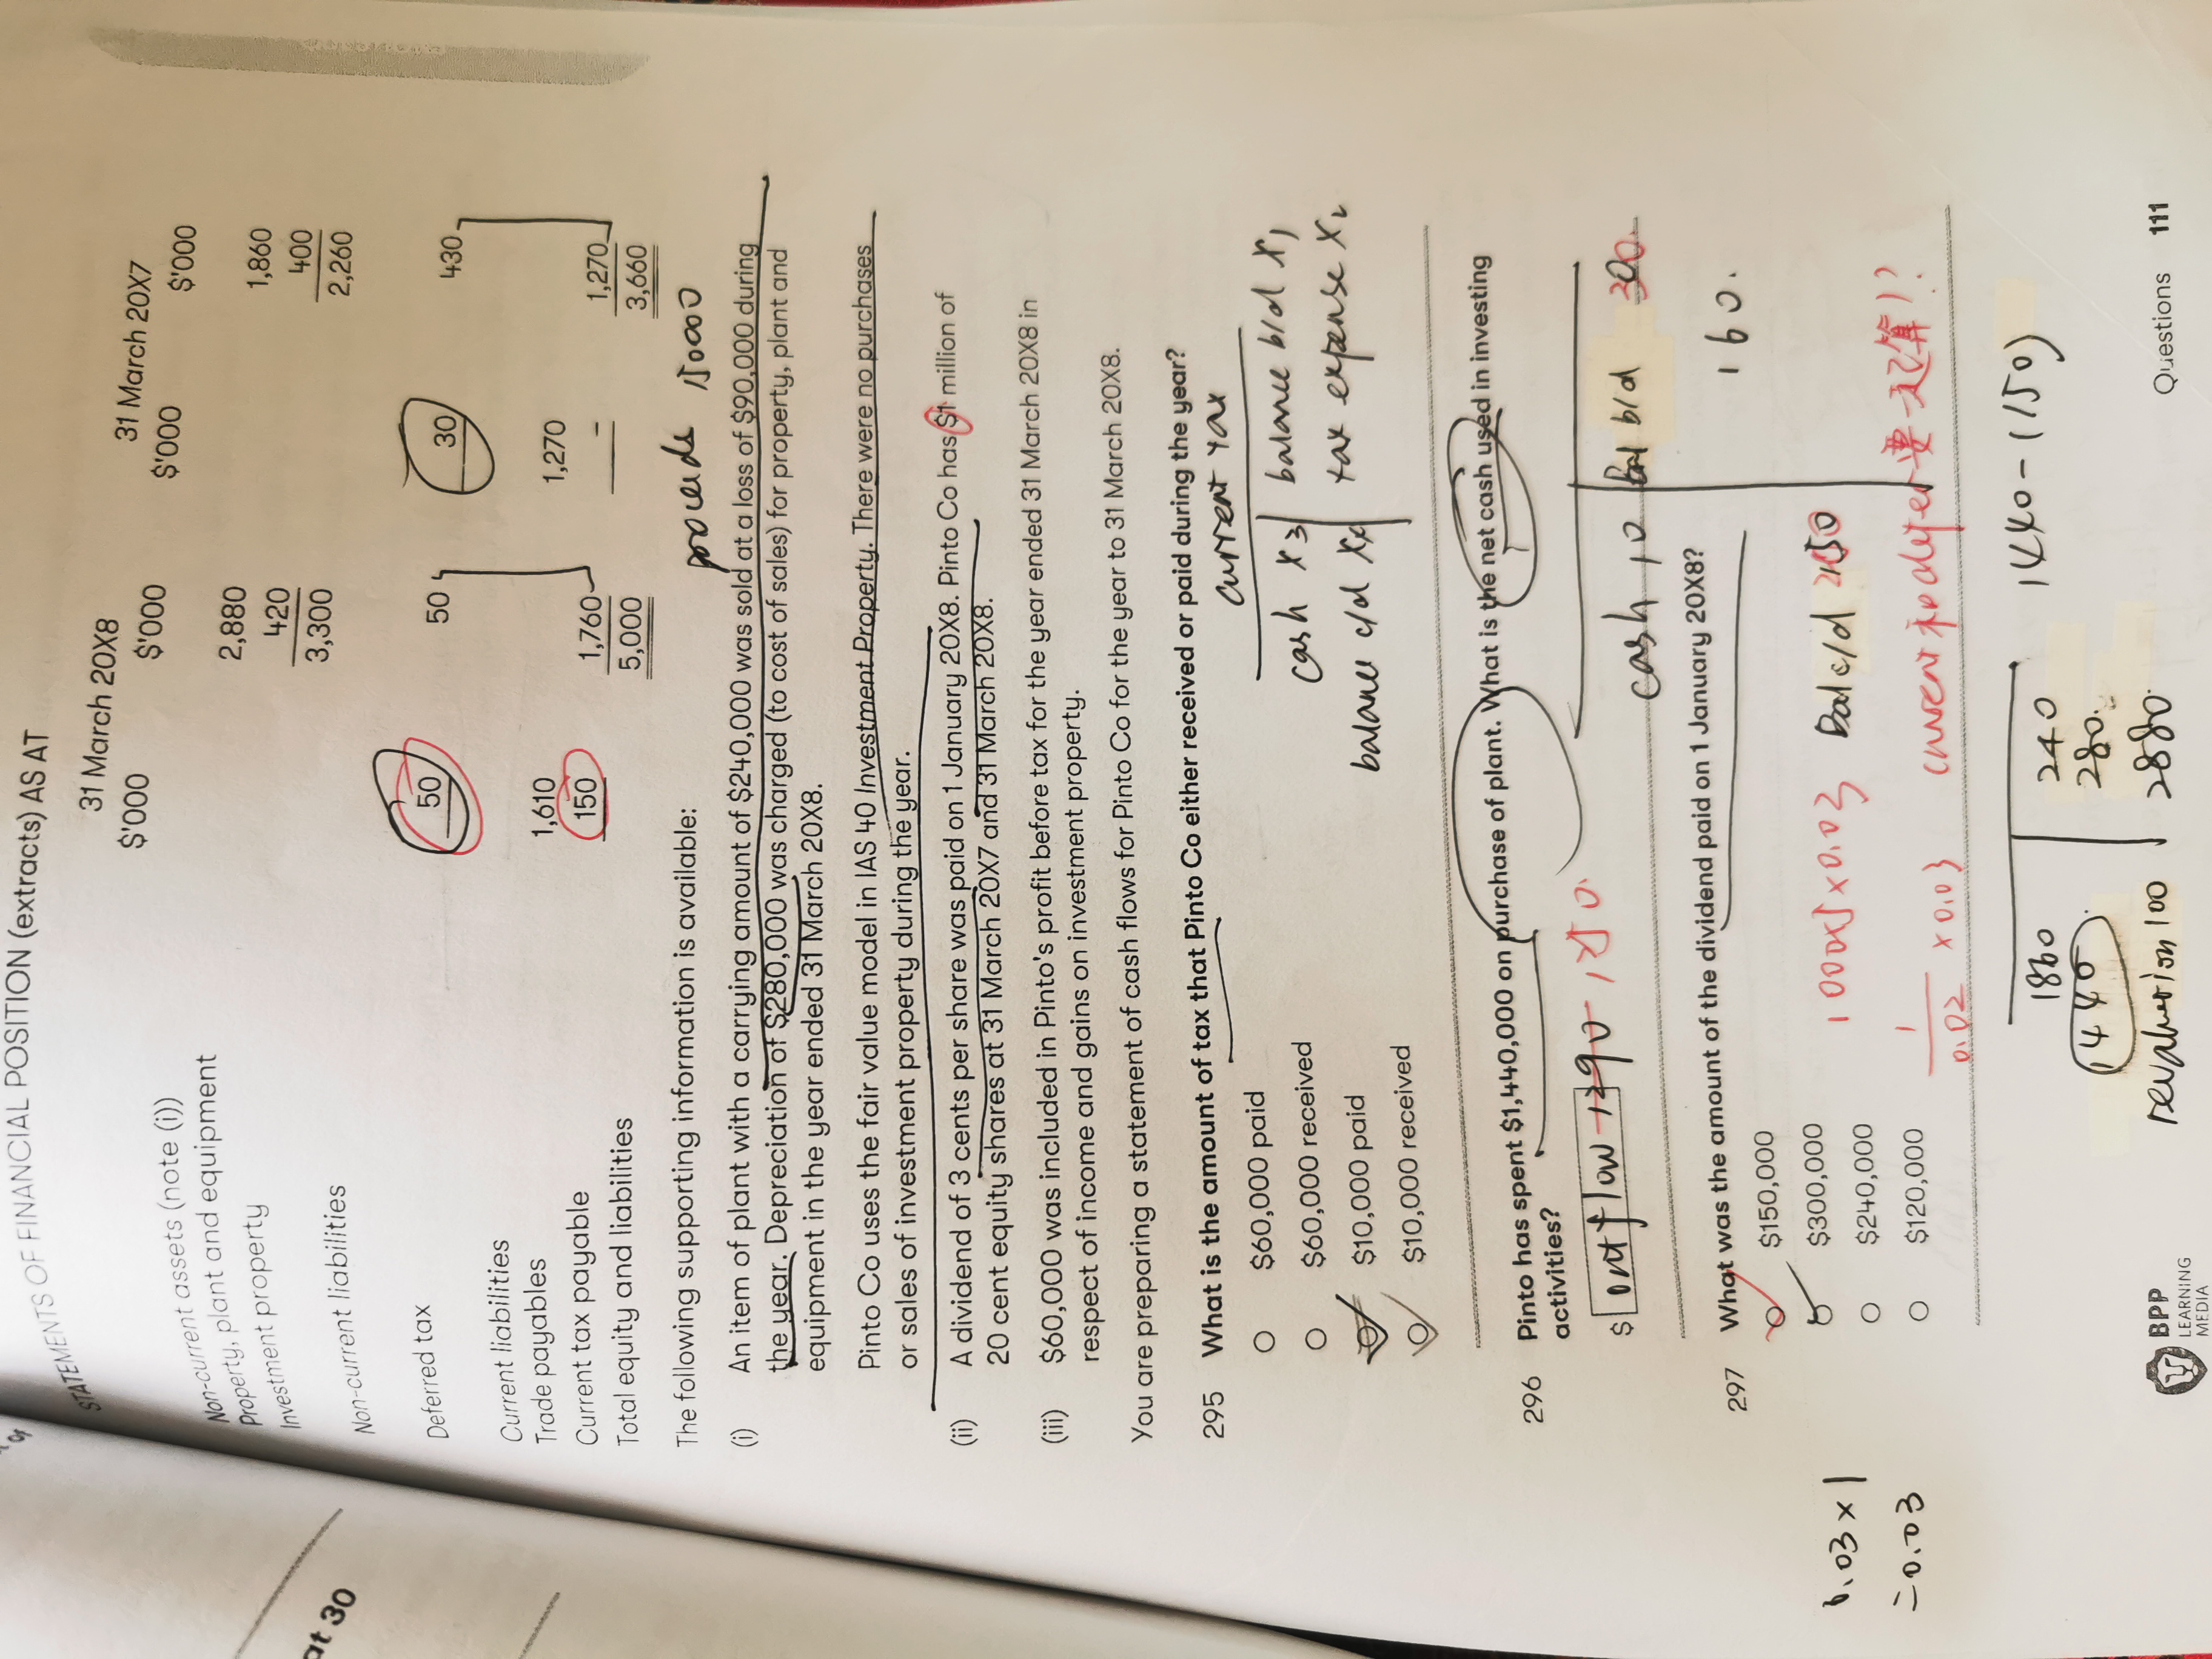 STATEMENTS OF FINANCIAL POSITION (extracts) AS AT
31 March 20X8 31 March 20X7
$'000 $'000 $'000 $'000
Non-current assets (note (i))
Property, plant and equipment 2,880 1,860
Investment property 420 400
3,300 2,260
Non-current liabilities
Deferred tax 50 50 30 430
Current liabilities
Trade payables 1,610 1,270
Current tax payable 150 1,760 – 1,270
Total equity and liabilities 5,000 3,660
The following supporting information is available:
(i) An item of plant with a carrying amount of $240,000 was sold at a loss of $90,000 during
the year. Depreciation of $280,000 was charged (to cost of sales) for property, plant and
equipment in the year ended 31 March 20X8.
Pinto Co uses the fair value model in IAS 40 Investment Property. There were no purchases
or sales of investment property during the year.
(ii) A dividend of 3 cents per share was paid on 1 January 20X8. Pinto Co has $1 million of
20 cent equity shares at 31 March 20X7 and 31 March 20X8.
(iii) $60,000 was included in Pinto's profit before tax for the year ended 31 March 20X8 in
respect of income and gains on investment property.
You are preparing a statement of cash flows for Pinto Co for the year to 31 March 20X8.
295 What is the amount of tax that Pinto Co either received or paid during the year?
current tax
cash x3 balance b/d x1
balance c/d tax expense x2
$60,000 paid
$60,000 received
$10,000 paid
$10,000 received
296 Pinto has spent $1,440,000 on purchase of plant. What is the net cash used in investing
activities?
$ outflow 1290
cash 10 bal b/d
Bal c/d 160.
297 What was the amount of the dividend paid on 1 January 20X8?
$150,000
$300,000
$240,000
$120,000
0.03 x 1
= 0.03
x 0.03
1860 240
1440 280
revaluation 100 2880
1440-(150)
BPP
LEARNING
MEDIA
Questions 111
at 30